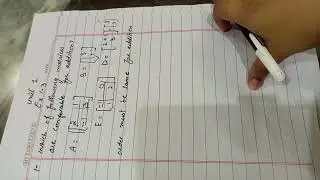 Unit 1
Ex 1.3
1- Which of following matrices
are comparable for addition?
A = [2 1
-1 3] B = [3
1]
E = [-1 0
1 2] D = [2+1
3]
order must be same for addition